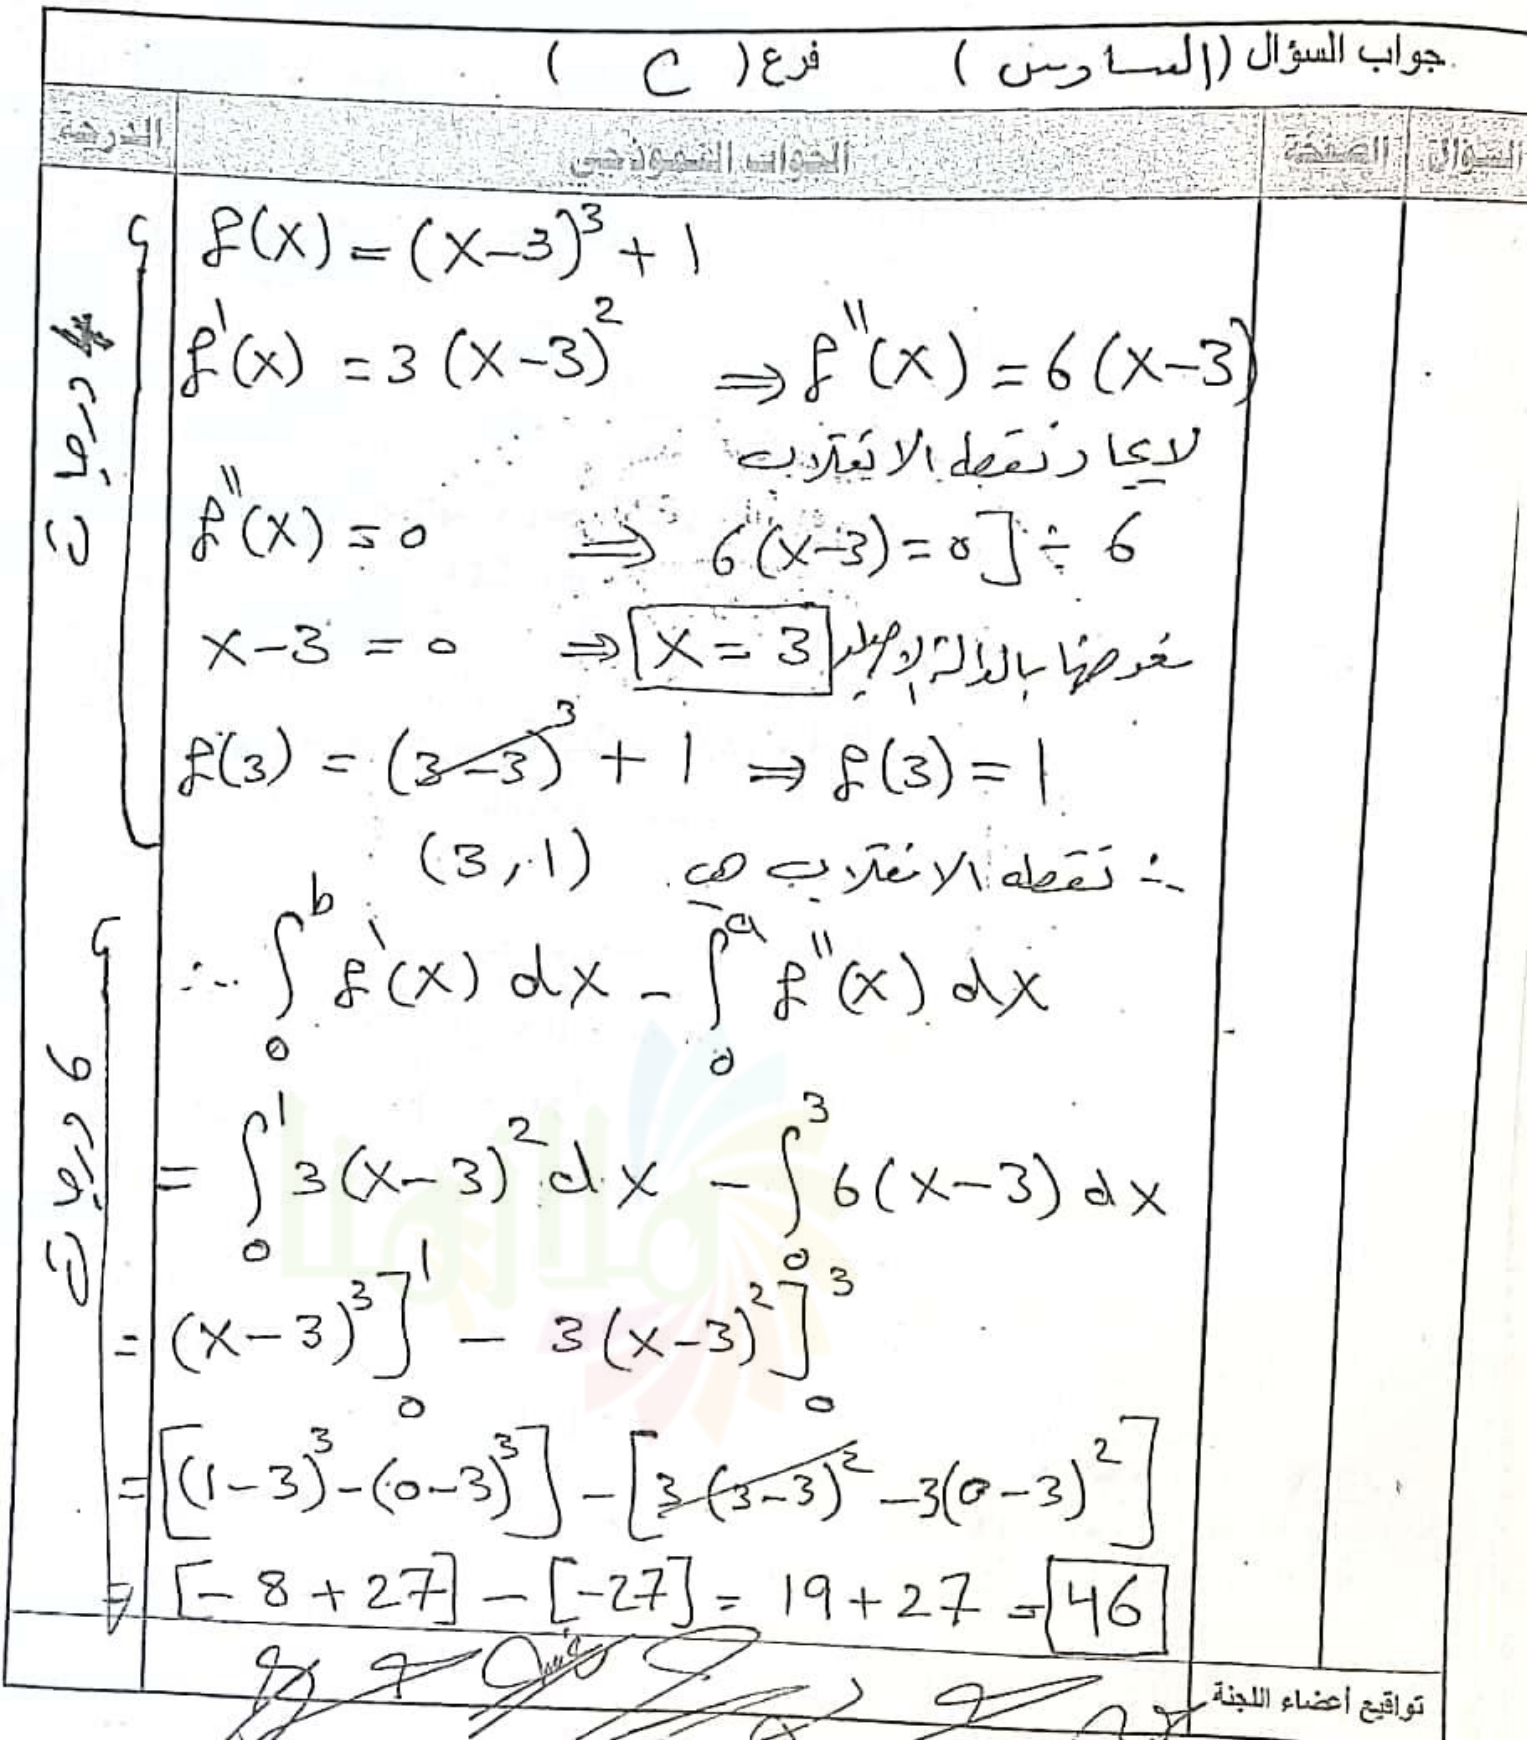 جواب السؤال (السادس) فرع (C)
السؤال الصفحة الجواب النموذجي الدرجة
f(x) = (x-3)³ + 1
f'(x) = 3(x-3)² ⇒ f''(x) = 6(x-3)
لايجاد نقطه الانقلاب
f''(x) = 0 ⇒ 6(x-3) = 0] ÷ 6
x-3 = 0 ⇒ x = 3 نعوضها بالدالة الاصلية
f(3) = (3-3)³ + 1 ⇒ f(3) = 1
∴ نقطه الانقلاب هي (3,1)
4 درجات
∴ ∫₀ᵇ f'(x) dx - ∫₀ᵃ f''(x) dx
= ∫₀¹ 3(x-3)² dx - ∫₀³ 6(x-3) dx
= (x-3)³]₀¹ - 3(x-3)²]₀³
= [(1-3)³-(0-3)³] - [3(3-3)² -3(0-3)²]
= [-8+27] - [-27] = 19+27 = 46
6 درجات
تواقيع أعضاء اللجنة